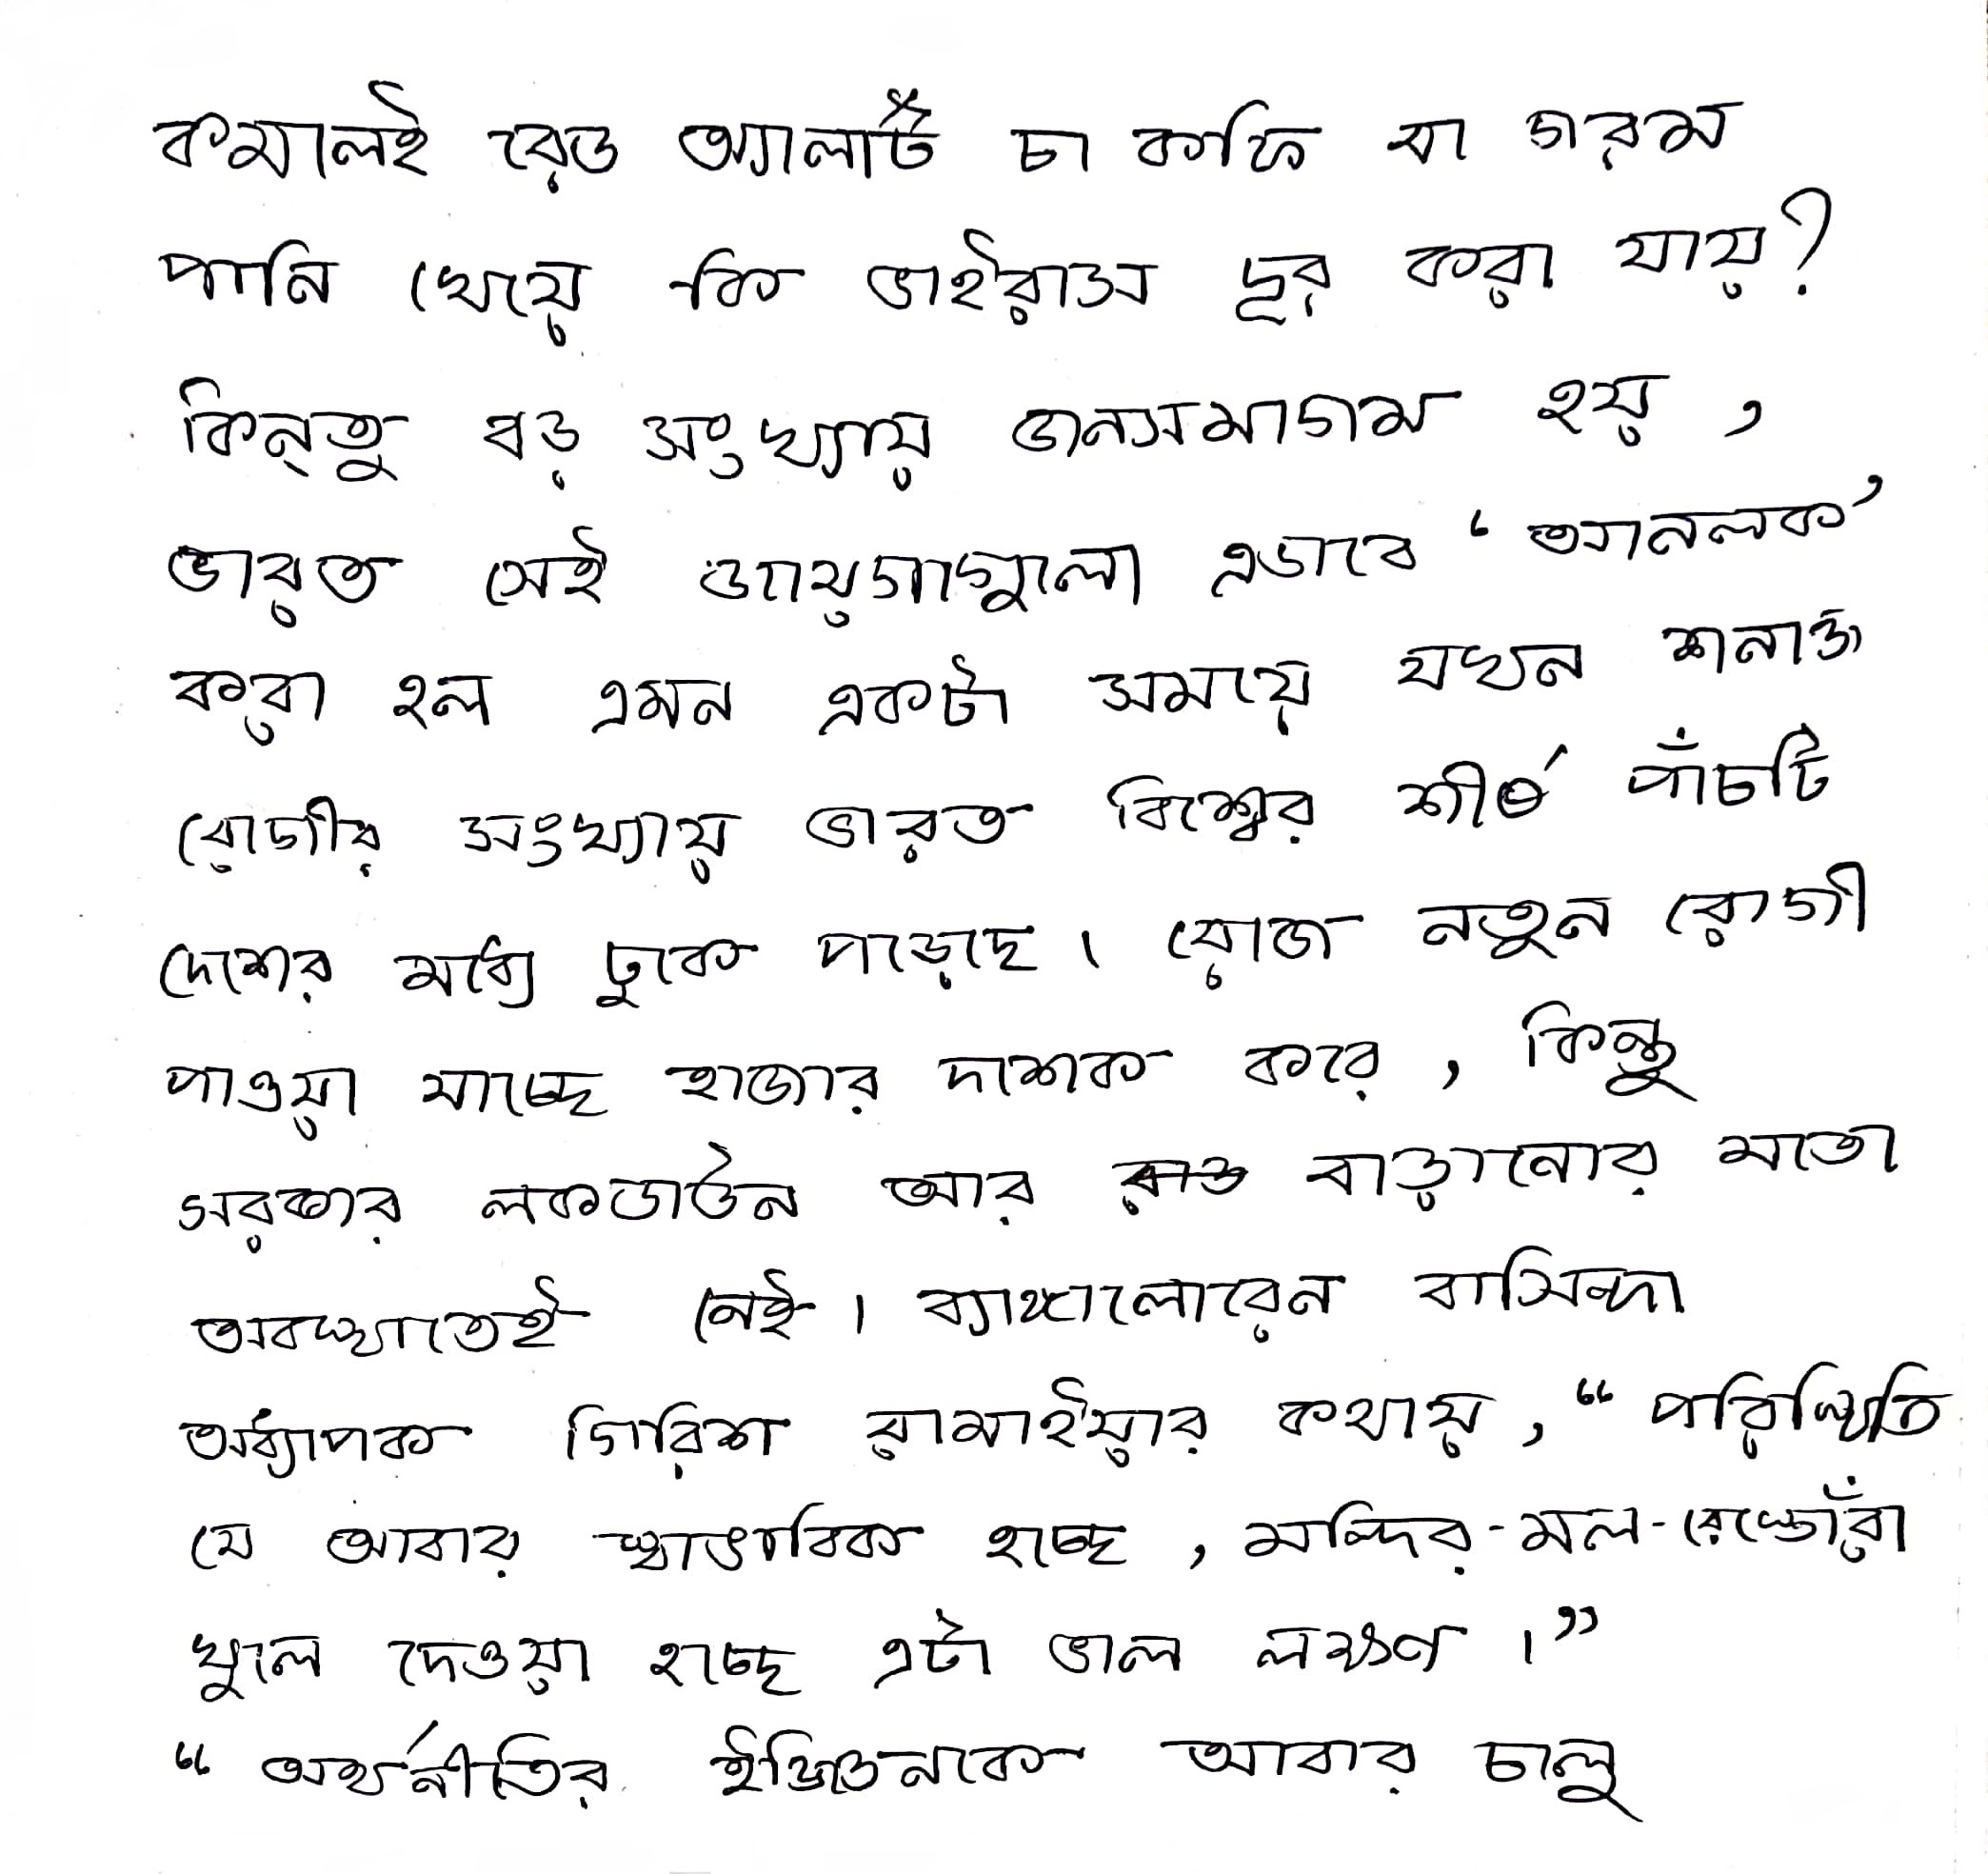 কমালেই রেড অ্যালার্ট চা কফি বা গরম
পানি খেয়ে কি ভাইরাস দূর করা যায়?
কিন্তু বড় সংখ্যায় জনসমাগম হয়,
ভারত সেই জায়গাগুলো এভাবে ‘আনলক’
করা হল এমন একটা সময়ে যখন শনাক্ত
রোগীর সংখ্যায় ভারত বিশ্বের শীর্ষ পাঁচটি
দেশের মধ্যে ঢুকে পড়েছে। রোজ নতুন রোগী
পাওয়া যাচ্ছে হাজার দশেক করে, কিন্তু
সরকার লকডাউন আর বাড়ানোর মতো
অবস্থাতেই নেই। ব্যাঙ্গালোরেন বাসিন্দা
অধ্যাপক গিরিশ রামাইয়ার কথায়, “পরিস্থিতি
যে আবার স্বাভাবিক হচ্ছে, মন্দির-মল-রেস্তোরাঁ
খুলে দেওয়া হচ্ছে এটা ভাল লক্ষণ।”
“অর্থনীতির ইঞ্জিনকে আবার চালু